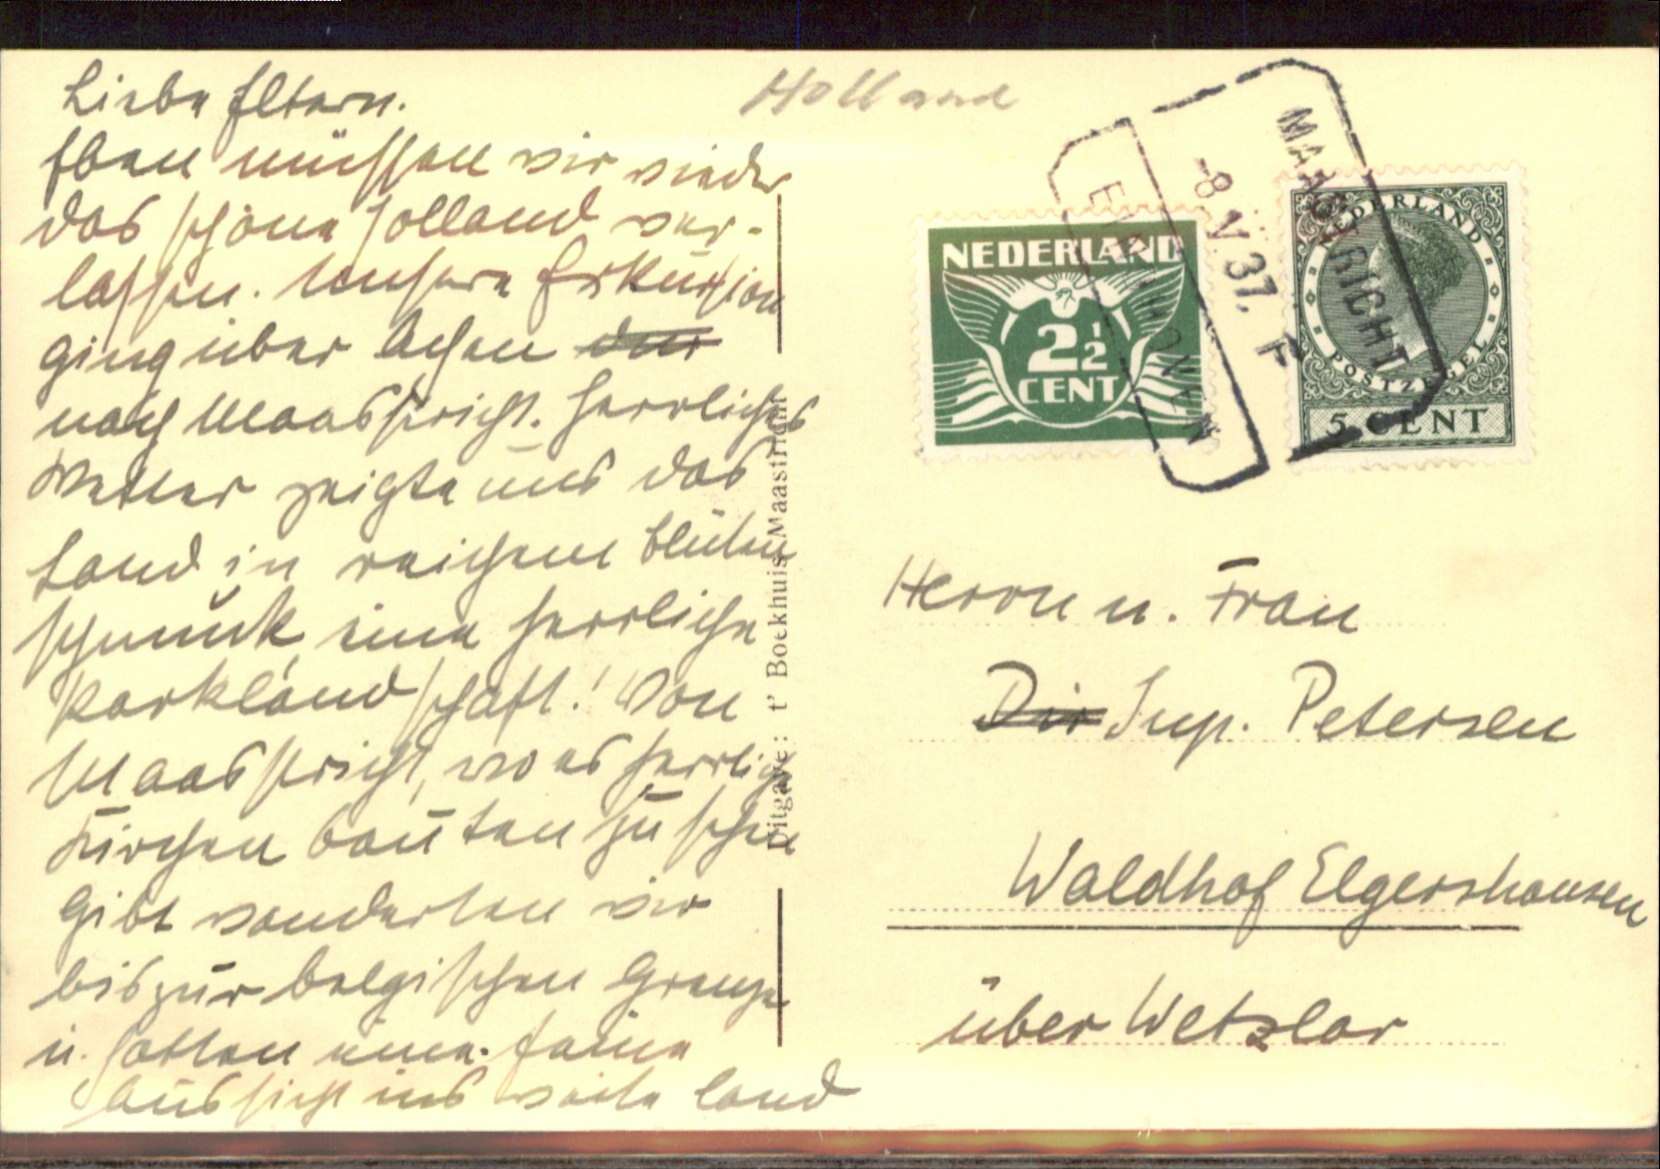 Liebe Eltern.
Eben müssen wir wieder
das schöne Holland ver-
lassen. Unsere Exkursion
ging über Achen dur
nach Maastricht. Herrliches
Wetter zeigte uns das
Land in reichem Blüten
schmuck, eine herrliche
Parklandschaft! Von
Maastricht, wo es herrliche
Kirchen bauten zu sehen
gibt wanderten wir
bis zur belgischen Grenze
u. hatten eine feine
Aussicht ins weite Land
Holland
Uitgave: t' Boekhuis Maastricht
MAASTRICHT
-8.V.37. F
EINDHOVEN
NEDERLAND
2½
CENT
NEDERLAND
POSTZEGEL
5 CENT
Herrn u. Frau
Dir Insp. Petersen
Waldhof Elgershausen
über Wetzlar